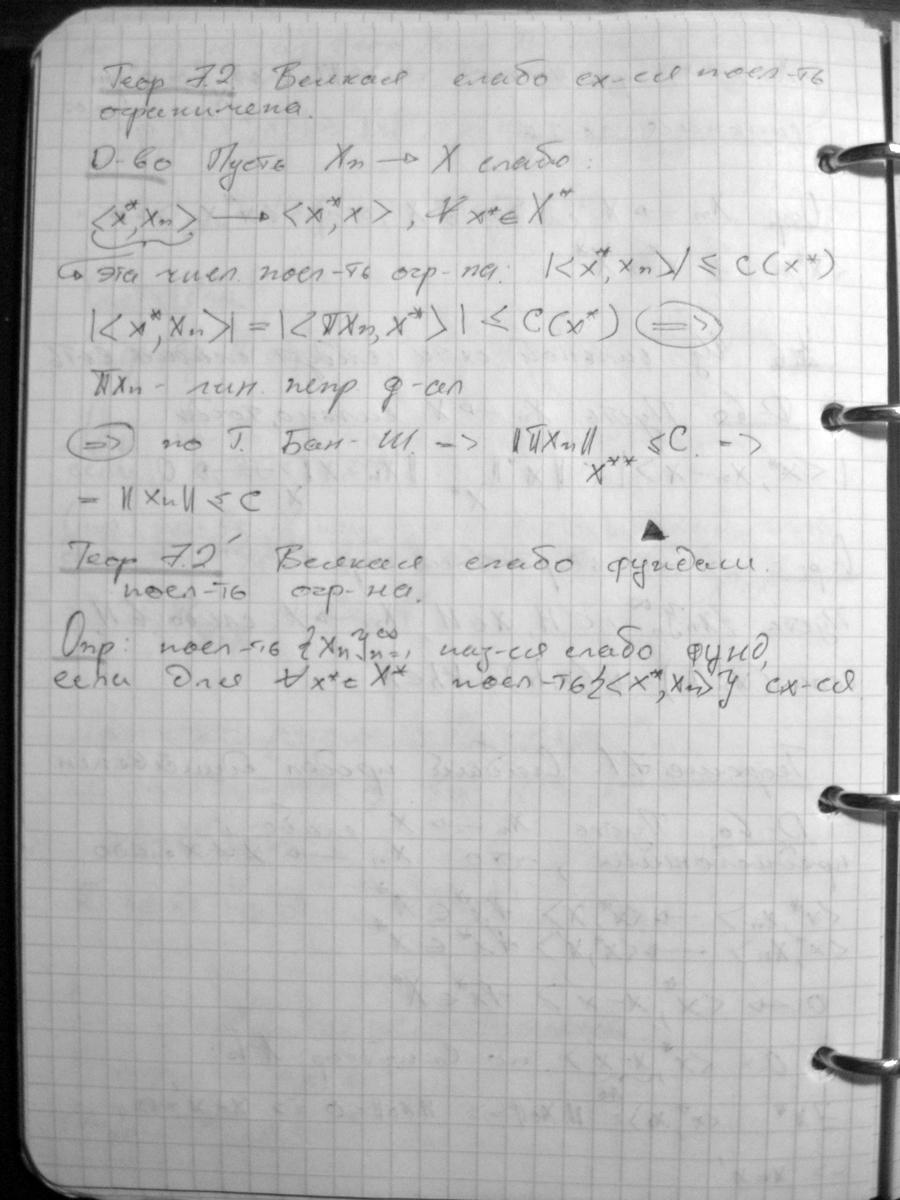 Теор 7.2 Всякая слабо сх-ся посл-ть
ограничена.
Д-во Пусть Xn → X слабо:
<x*, xn> → <x*, x>, ∀ x* ∈ X*
эта числ. посл-ть огр-на: |<x*, xn>| ≤ C(x*)
|<x*, xn>| = |<πxn, x*>| ≤ C(x*) =>
πxn - лин. непр ф-ал
=> по Т. Бан-Ш. => ‖πxn‖X** ≤ C. =>
= ‖xn‖ ≤ C
▲
Теор 7.2' Всякая слабо фундам.
посл-ть огр-на.
Опр: посл-ть {xn}n=1∞ наз-ся слабо фунд,
если для ∀ x* ∈ X* посл-ть {<x*, xn>} сх-ся